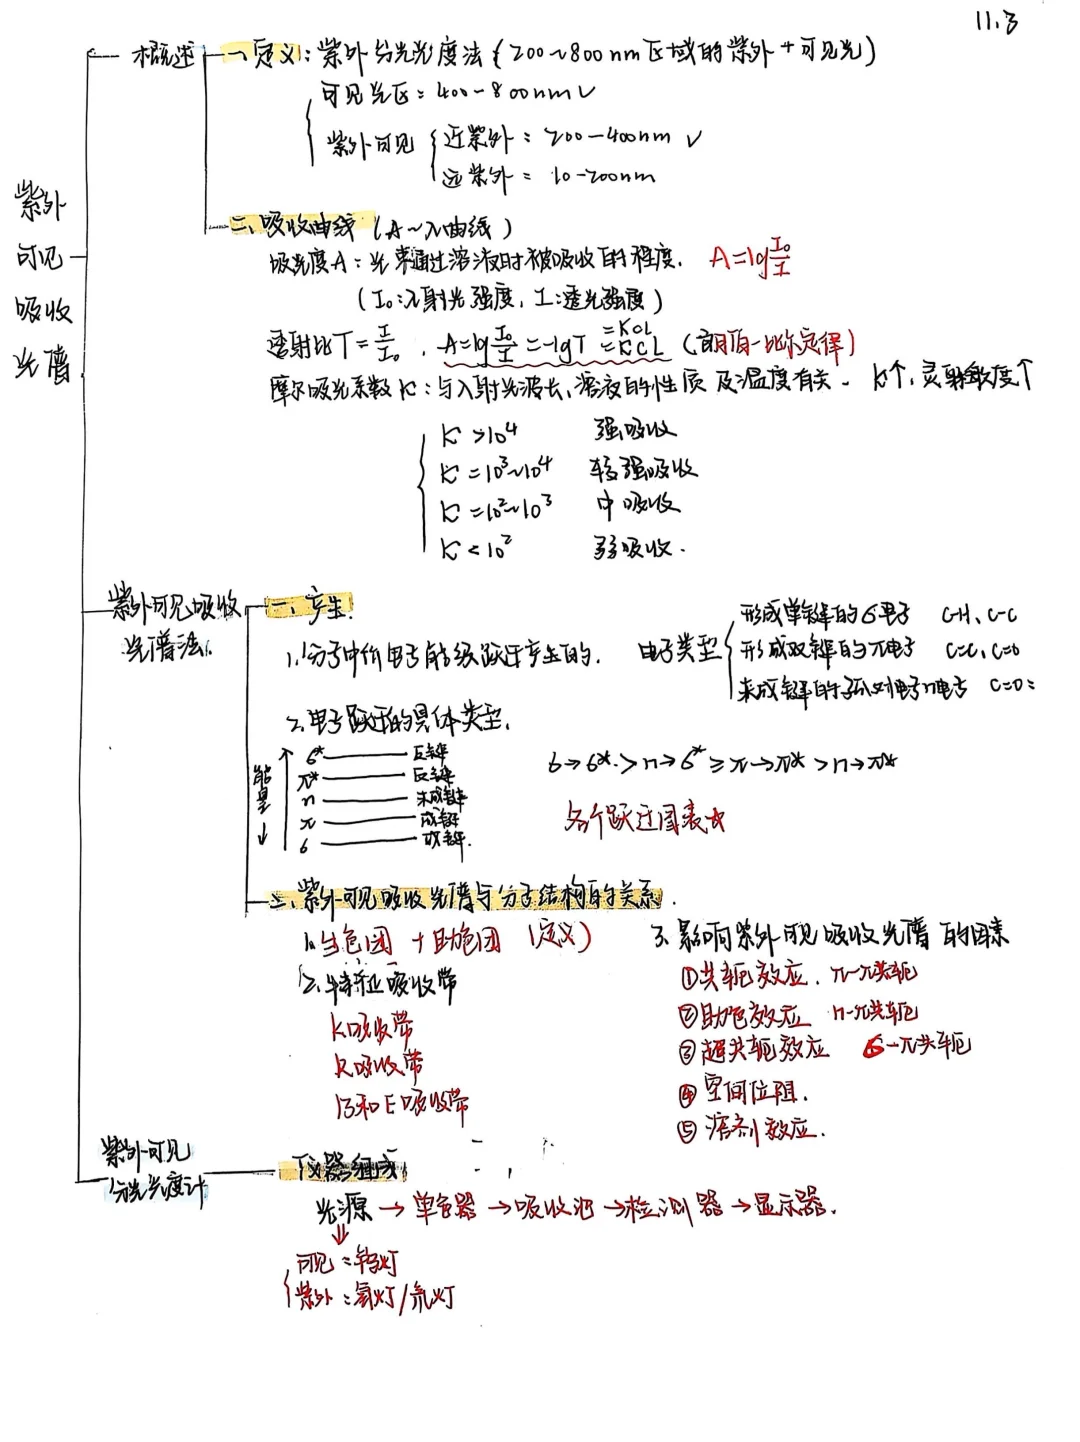 11.3
紫外
可见
吸收
光谱
概述
一、定义：紫外分光光度法（200~800nm区域的紫外+可见光）
可见光区：400-800nm √
紫外可见
近紫外：200-400nm √
远紫外：10-200nm
二、吸收曲线（A~λ曲线）
吸光度A：光束通过溶液时被吸收的程度. A=lg I₀/I
（I₀:入射光强度，I:透光强度）
透射比T=I/I₀ . A=lg I₀/I=-lgT=KCL（朗伯-比尔定律）
=KCL
摩尔吸光系数K：与入射光波长、溶液的性质及温度有关. K↑，灵敏度↑
K>10⁴ 强吸收
K=10³~10⁴ 较强吸收
K=10²~10³ 中吸收
K<10² 弱吸收.
紫外可见吸收
光谱法.
一、产生.
1.分子中价电子能级跃迁产生的.
电子类型
形成单键的σ电子 C-H、C-C
形成双键的π电子 C=C、C=O
未成键的孤对电子n电子 C=O:
2.电子跃迁的具体类型.
能量
σ* 反键
π* 反键
n 未成键
π 成键
σ 成键.
σ→σ*>n→σ*≥π→π*>n→π*
各个跃迁图表☆
二、紫外可见吸收光谱与分子结构的关系.
1.生色团+助色团（定义）
2.特征吸收带
K吸收带
R吸收带
B和E吸收带
3.影响紫外可见吸收光谱的因素
①共轭效应. π-π共轭
②助色效应 n-π共轭
③超共轭效应 σ-π共轭
④空间位阻.
⑤溶剂效应.
紫外可见
分光光度计
仪器组成
光源→单色器→吸收池→检测器→显示器.
可见：钨灯
紫外：氢灯/氘灯